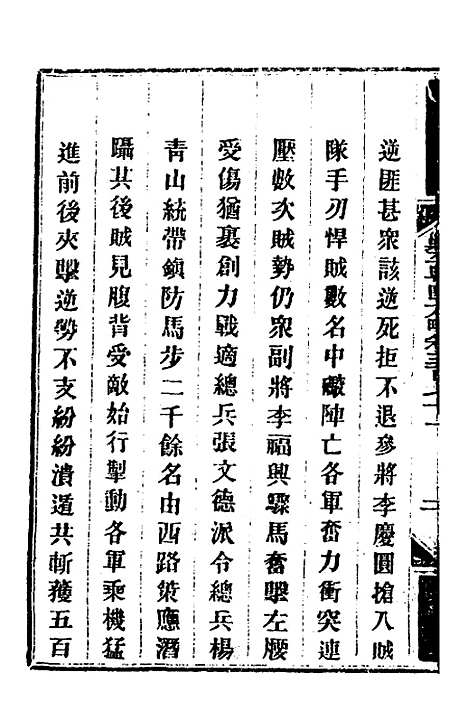 逆匪甚衆該逆死拒不退參將李慶圓搶入賊
隊手刃悍賊數名中礮陣亡各軍奮力衝突連
壓數次賊勢仍衆副將李福興驟馬奮擊左腰
受傷猶裹創力戰適總兵張文德派令總兵楊
青山統帶鎭防馬步二千餘名由西路策應潛
躡其後賊見腹背受敵始行掣動各軍乘機猛
進前後夾擊逆勢不支紛紛潰遁共斬獲五百